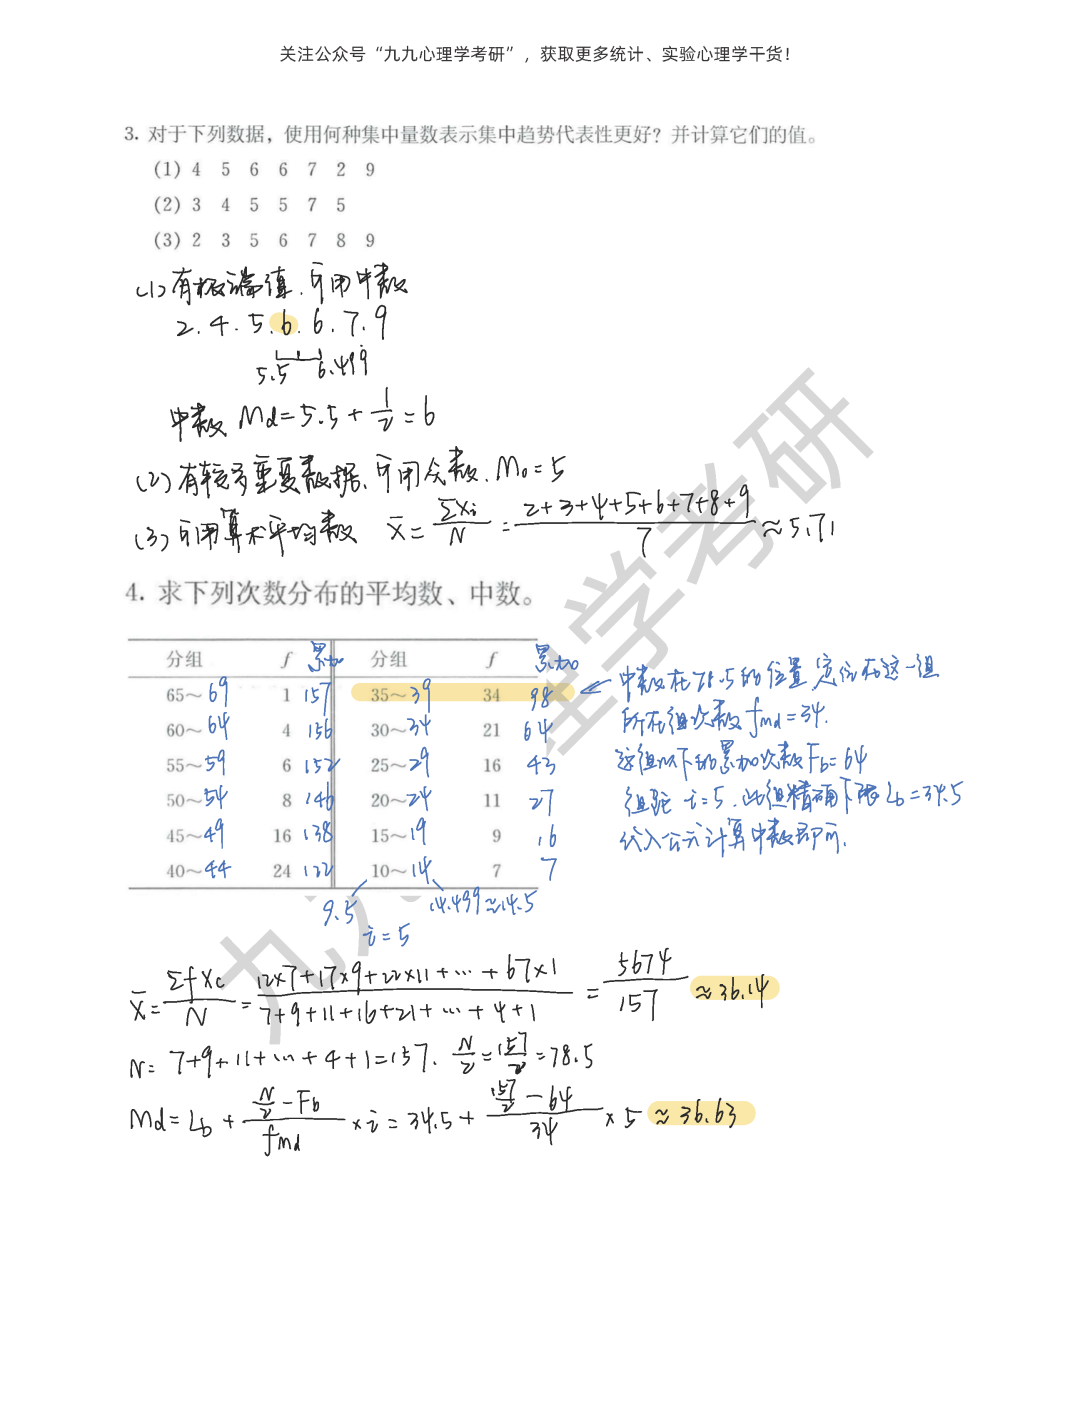 关注公众号“九九心理学考研”，获取更多统计、实验心理学干货！
3. 对于下列数据，使用何种集中量数表示集中趋势代表性更好？并计算它们的值。
(1) 4 5 6 6 7 2 9
(2) 3 4 5 5 7 5
(3) 2 3 5 6 7 8 9
(1) 有极端值，可用中数
2. 4. 5. 6. 6. 7. 9
5.5 6.499
中数 Md = 5.5 + 1/2 = 6
(2) 有较多重复数据，可用众数. Mo = 5
(3) 可用算术平均数 X̄ = ΣXi/N = (2+3+4+5+6+7+8+9)/7 ≈ 5.71
4. 求下列次数分布的平均数、中数。
分组 f 累加 分组 f 累加
65～69 1 157 35～39 34 98
60～64 4 156 30～34 21 64
55～59 6 152 25～29 16 43
50～54 8 146 20～24 11 27
45～49 16 138 15～19 9 16
40～44 24 122 10～14 7 7
中数在78.5的位置，定位在这一组
所在组次数 fmd = 34.
这组以下的累加次数 Fb = 64
组距 i = 5. 此组精确下限 Lb = 34.5
代入公式计算中数即可.
9.5 14.499≈14.5
i = 5
X̄ = ΣfXc/N = (12×7+17×9+22×11+…+67×1)/(7+9+11+16+21+…+4+1) = 5674/157 ≈ 36.14
N = 7+9+11+…+4+1 = 157. N/2 = 157/2 = 78.5
Md = Lb + (N/2 − Fb)/fmd × i = 34.5 + (157/2 − 64)/34 × 5 ≈ 36.63
九九心理学考研